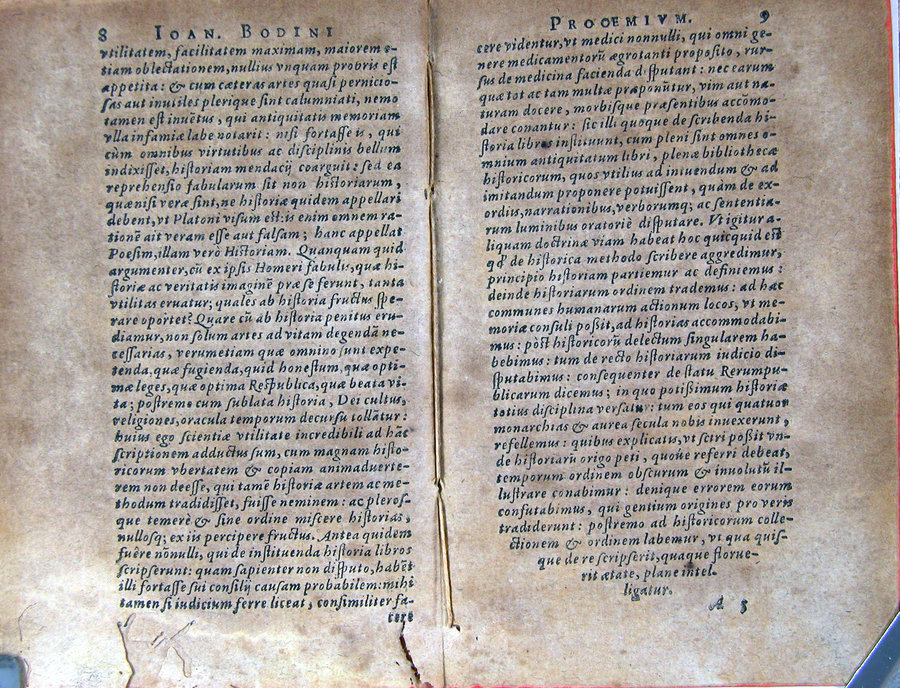 8 IOAN. BODINI
vtilitatem, facilitatem maximam, maiorem e-
tiam oblectationem, nullius vnquam probris est
appetita: & cum cæteras artes quasi pernicio-
sas aut inutiles plerique sint calumniati, nemo
tamen est inuētus, qui antiquitatis memoriam
vlla infamiæ labe notarit: nisi fortasse is, qui
cùm omnibus virtutibus ac disciplinis bellum
indixisset, historiam mendacij coarguit: sed ea
reprehensio fabularum sit non historiarum,
quæ nisi veræ sint, ne historiæ quidem appellari
debent, vt Platoni visum est: is enim omnem ra-
tionē ait veram esse aut falsam; hanc appellat
Poesim, illam verò Historiam. Quanquam quid
argumenter, cū ex ipsis Homeri fabulis, quæ hi-
storiæ ac veritatis imaginē præ se ferunt, tanta
vtilitas eruatur; quales ab historia fructus spe-
rare oportet? Quare cū ab historia penitus eru-
diamur, non solùm artes ad vitam degendā ne-
cessarias, verumetiam quæ omnino sunt expe-
tenda, quæ fugienda, quid honestum, quæ opti-
mæ leges, quæ optima Respublica, quæ beata vi-
ta; postremo cum sublata historia, Dei cultus,
religiones, oracula temporum decursu tollātur:
huius ego scientiæ vtilitate incredibili ad hāc
scriptionem adductus sum, cum magnam histo-
ricorum vbertatem & copiam animaduerte-
rem non deesse, qui tamē historiæ artem ac me-
thodum tradidisset, fuisse neminem: ac pleros-
que temerè & sine ordine miscere historias,
nullosq; ex iis percipere fructus. Antea quidem
fuêre nōnulli, qui de instituenda historia libros
scripserunt: quam sapienter non disputo, habēt
illi fortasse sui consilij causam probabilem: mihi
tamen si iudicium ferre liceat, consimiliter fa-
cere
PROOEMIVM. 9
cere videntur, vt medici nonnulli, qui omni ge-
nere medicamentorū ægrotanti proposito, rur-
sus de medicina facienda disputant: nec earum
quæ tot ac tam multæ propōnūtur, vim aut na-
turam docere, morbisque præsentibus accōmo-
dare conantur: sic illi quoque de scribenda hi-
storia libros instituunt, cum pleni sint omnes o-
mnium antiquitatum libri, plenæ bibliothecæ
historicorum, quos vtilius ad intuendum & ad
imitandum proponere potuissent, quàm de ex-
ordiis, narrationibus, verborumq; ac sententia-
rum luminibus oratoriè disputare. Vt igitur a-
liquam doctrinæ viam habeat hoc quicquid est
qď de historica methodo scribere aggredimur,
principio historiam partiemur ac definiemus:
deinde historiarum ordinem trademus: ad hæc
communes humanarum actionum locos, vt me-
moriæ consuli possit, ad historias accommodabi-
mus: pòst historicorū delectum singularem ha-
bebimus: tum de recto historiarum iudicio di-
sputabimus: consequenter de statu Rerumpu-
blicarum dicemus; in quo potissimum historiæ
totius disciplina versatur: tum eos qui quatuor
monarchias & aurea secula nobis inuexerunt,
refellemus: quibus explicatis, vt sciri possit vn-
de historiarū origo peti, quoúe referri debeat,
temporum ordinem obscurum & inuolutū il-
lustrare conabimur: denique errorem eorum
confutabimus, qui gentium origines pro veris
tradiderunt: postremo ad historicorum colle-
ctionem & ordinem labemur, vt qua quis-
que de re scripserit, quaque florue-
rit ætate, plane intel-
ligatur.
A 5